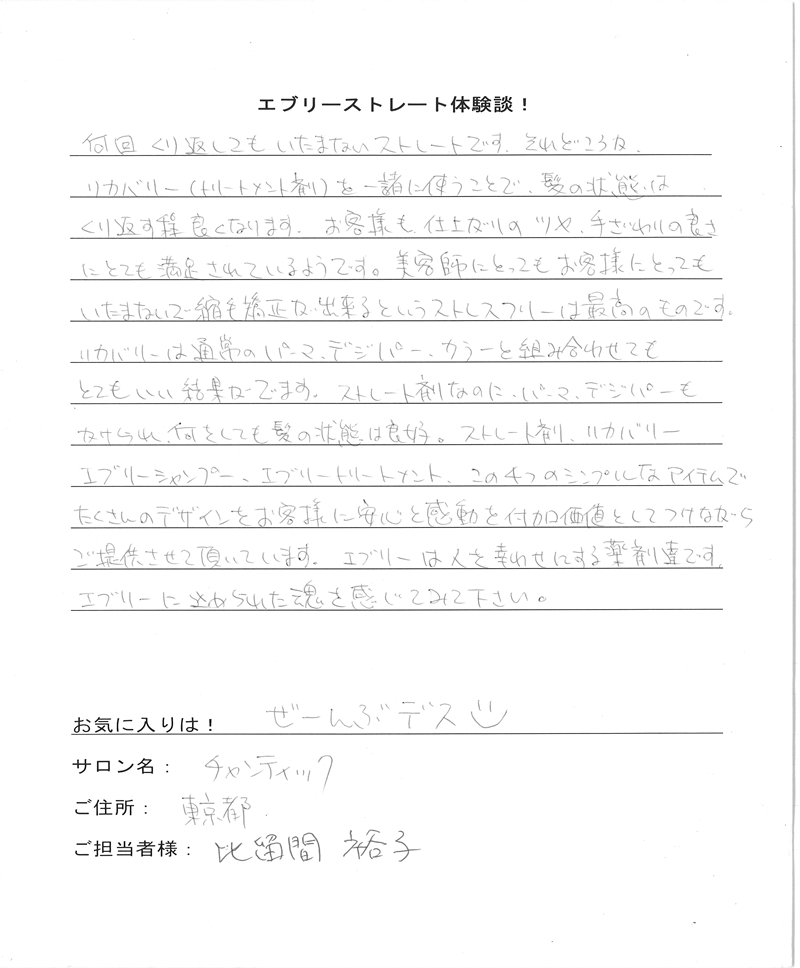 エブリーストレート体験談！
何回くり返してもいたまないストレートです。それどころか、
リカバリー(トリートメント剤)を一緒に使うことで、髪の状態は
くり返す程良くなります。お客様も、仕上がりのツヤ、手ざわりの良さ
にとても満足されているようです。美容師にとってもお客様にとっても
いたまないで縮毛矯正が出来るというストレスフリーは最高のものです。
リカバリーは通常のパーマ、デジパー、カラーと組み合わせても
とてもいい結果がでます。ストレート剤なのに、パーマ、デジパーも
かけられ、何をしても髪の状態は良好。ストレート剤、リカバリー
エブリーシャンプー、エブリートリートメント、この4つのシンプルなアイテムで
たくさんのデザインをお客様に安心と感動を付加価値としてつけながら
ご提供させて頂いています。エブリーは人を幸わせにする薬剤達です。
エブリーに込められた魂を感じてみて下さい。
お気に入りは！ ぜーんぶデス
サロン名： チャンティック
ご住所： 東京都
ご担当者様： 比留間 裕子